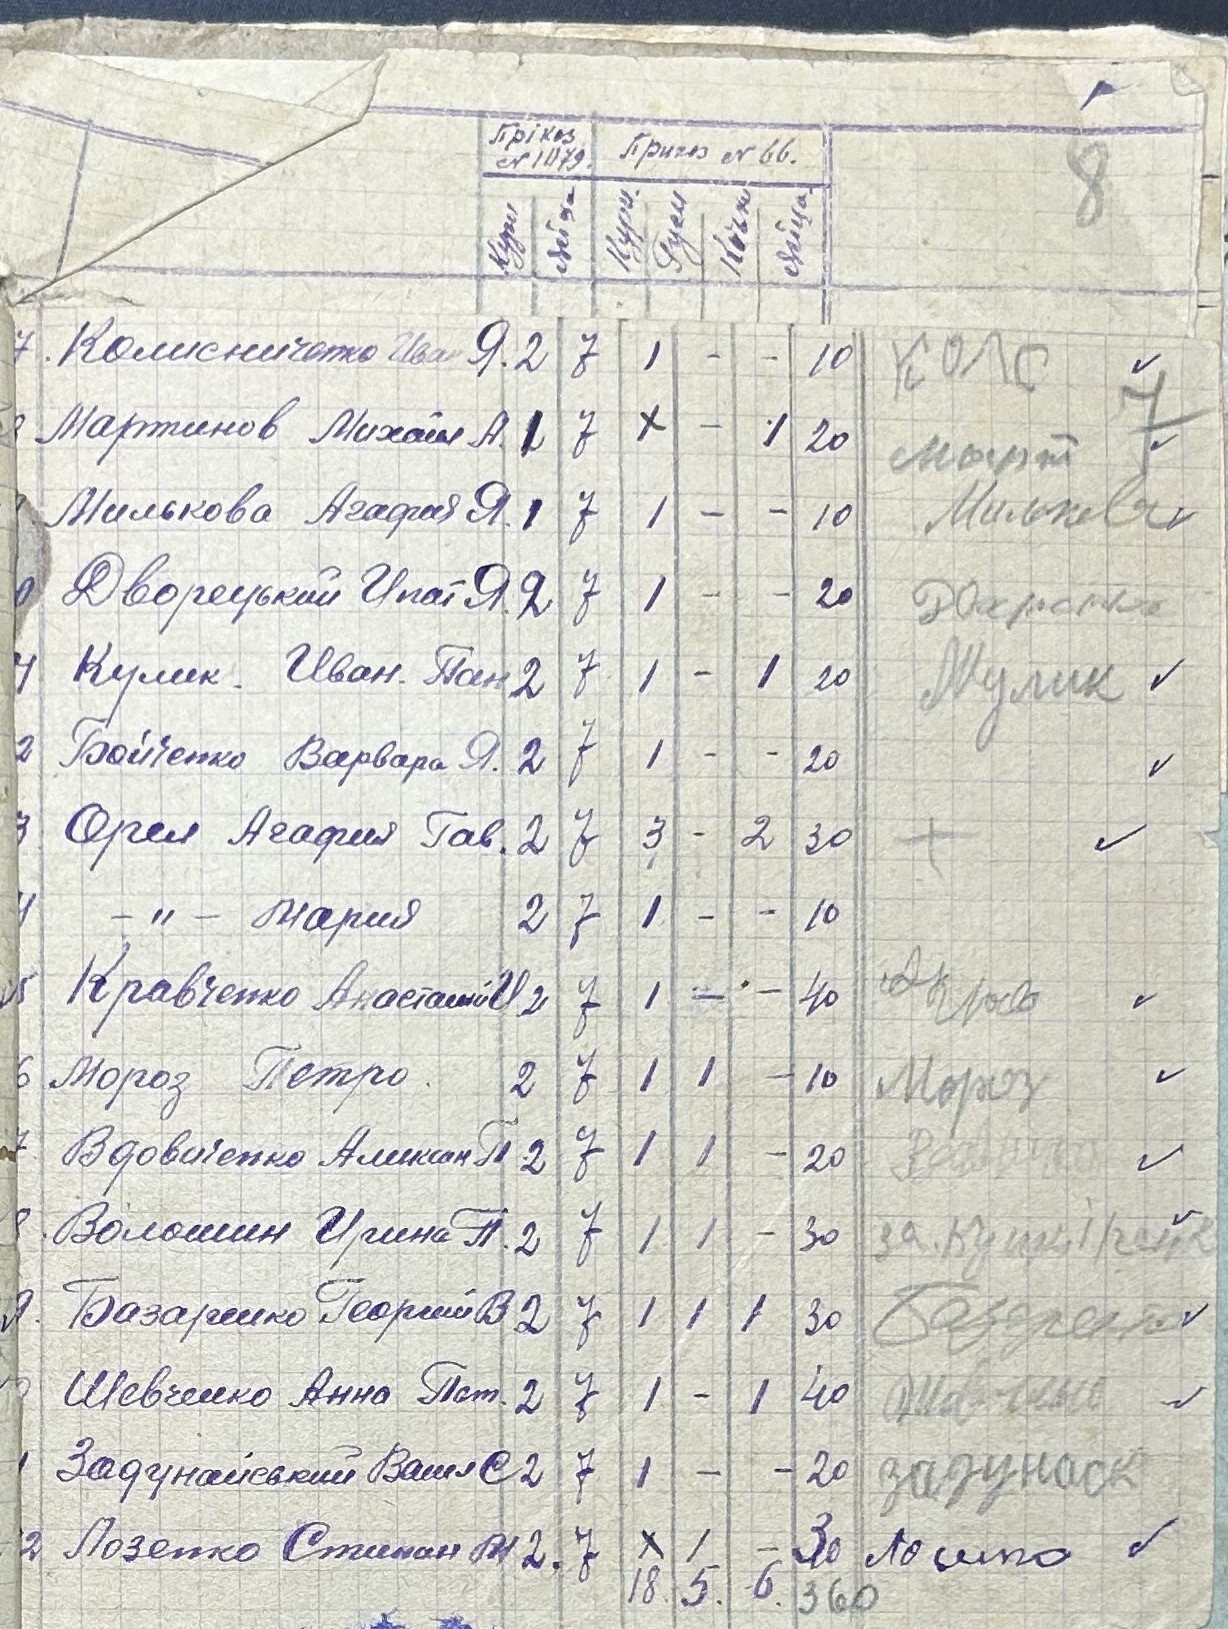 8
Прiказ Приказ № 66.
№ 1079.
Кури Яйца Кури Гуси Качки Яйца
7. Колисниченко Иван Я. 2 7 1 - - 10 КОЛС ✓
7
Мартинов Михайл А. 1 7 х - 1 20 март ✓
Милькова Агафия Я. 1 7 1 - - 10 Милькова ✓
Дворецький Ипат Я. 2 7 1 - - 20
Кулик. Иван. Пан 2 7 1 - 1 20 Кулик ✓
2 Бойченко Варвара Я. 2 7 1 - - 20 ✓
3 Орел Агафия Гав. 2 7 3 - 2 30 + ✓
- " - Мария 2 7 1 - - 10
5 Кравченко Анастасий И 2 7 1 - - 40 ✓
6 Мороз Петро. 2 7 1 1 - 10 Мороз ✓
7 Вдовиченко Алексан П. 2 7 1 1 - 20 ✓
8. Волошин Ирина П. 2 7 1 1 - 30 за ✓
9. Базаренко Георгий В 2 7 1 1 1 30 ✓
Шевченко Анна Пет. 2 7 1 - 1 40 ✓
1 Задунайський Васил С 2 7 1 - - 20 задунаск
2 Лозенко Степан М 2. 7 х 1 - 30 ✓
18. 5. 6. 360